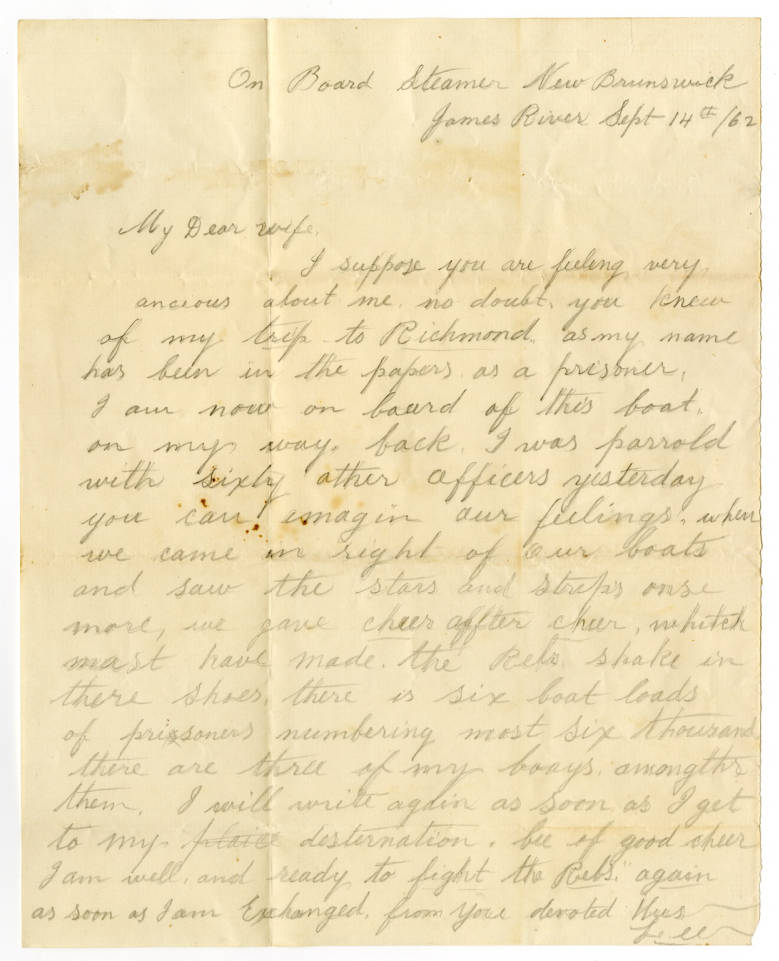 On Board Steamer New Brunswick
James River Sept 14th /62
My Dear wife.
I suppose you are feeling very
ancious about me. no doubt, you knew
of my trip to Richmond. as my name
has been in the papers as a prisoner,
I am now on board of this boat.
on my way. back. I was parrold
with sixty other officers yesterday
you can imagin our feelings. when
we came in right of our boats
and saw the stars and strips onse
more, we gave cheer affter cheer, whitch
mast have made. the Rebs. shake in
there shoes. there is six boat loads
of prissoners numbering most six thousand
there are three of my booys. amongths
them. I will write again as soon as I get
to my plaice desternation. bee of good cheer
I am well. and ready to fight the Rebs." again
as soon as I am Exchanged. from your devoted Hus